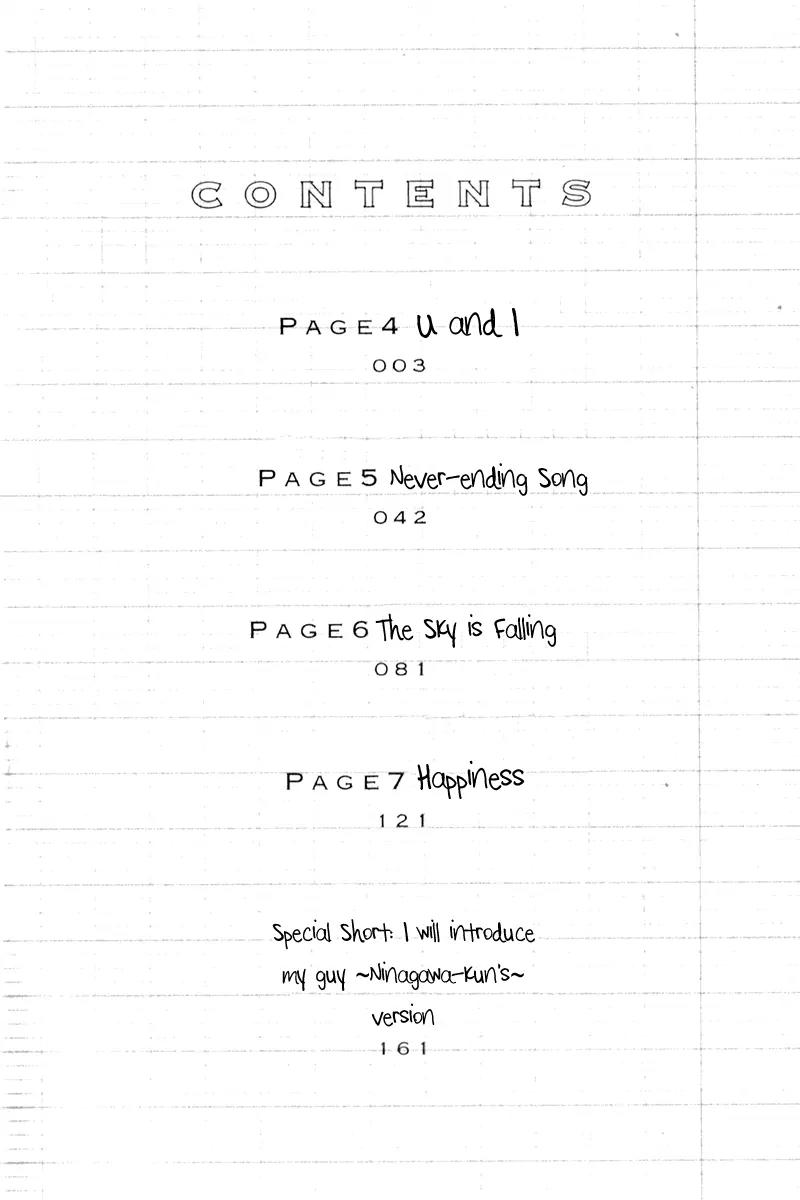 CONTENTS
PAGE4 U and I
003
PAGE5 Never-ending Song
042
PAGE6 The Sky is Falling
081
PAGE7 Happiness
121
Special Short: I will introduce
my guy ~Ninagawa-Kun's~
version
161